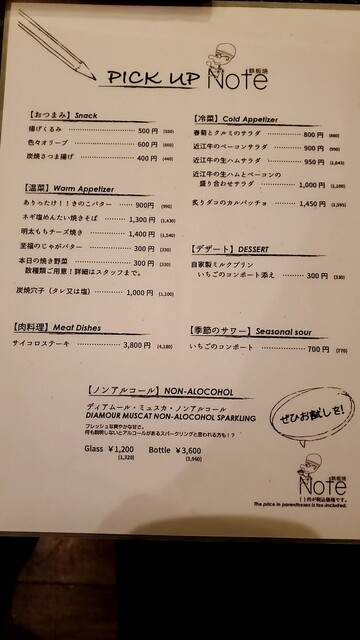 PICK UP 鉄板焼 Note
【おつまみ】Snack
揚げくるみ 500円 (550)
色々オリーブ 600円 (660)
炭焼さつま揚げ 400円 (440)
【温菜】Warm Appetizer
ありったけ!!きのこバター 900円 (990)
ネギ塩めんたい焼きそば 1,300円 (1,430)
明太もちチーズ焼き 1,400円 (1,540)
至福のじゃがバター 300円 (330)
本日の焼き野菜 300円 (330)
数種類ご用意！詳細はスタッフまで。
炭焼穴子（タレ又は塩） 1,000円 (1,100)
【肉料理】Meat Dishes
サイコロステーキ 3,800円 (4,180)
【冷菜】Cold Appetizer
春菊とクルミのサラダ 800円 (880)
近江牛のベーコンサラダ 900円 (990)
近江牛の生ハムサラダ 950円 (1,045)
近江牛の生ハムとベーコンの
盛り合わせサラダ 1,000円 (1,100)
炙りダコのカルパッチョ 1,450円 (1,595)
【デザート】DESSERT
自家製ミルクプリン
いちごのコンポート添え 300円 (330)
【季節のサワー】Seasonal sour
いちごのコンポート 700円 (770)
【ノンアルコール】NON-ALOCOHOL
ディアムール・ミュスカ・ノンアルコール
DIAMOUR MUSCAT NON-ALOCOHOL SPARKLING
フレッシュな爽やかな甘さ。
何も説明しないとアルコールがあるスパークリングと思われる方も！？
Glass ￥1,200 Bottle ￥3,600
(1,320) (3,960)
ぜひお試しを！
鉄板焼
Note
( )内が税込価格です。
The price in parentheses is tax-included.